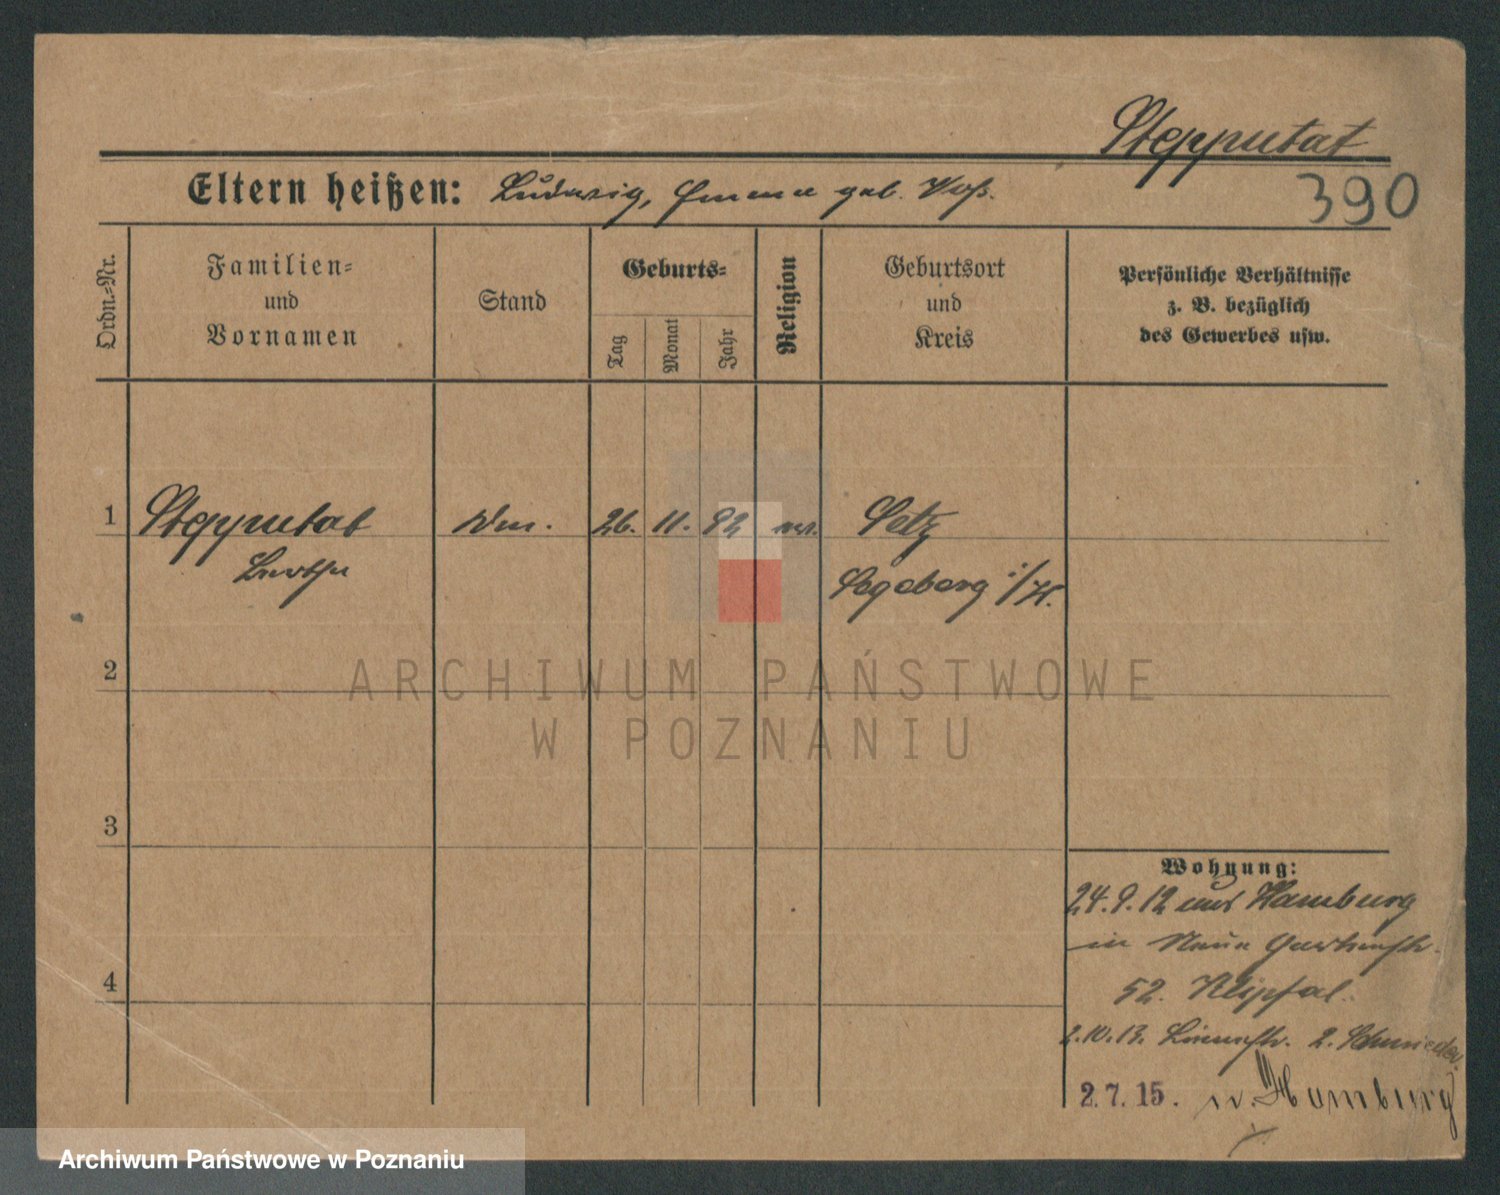 Stepputat
390
Eltern heißen: Ludwig, Emma geb. Voß.
Ordn.-Nr.
Familien-
und
Vornamen
Stand
Geburts-
Tag
Monat
Jahr
Religion
Geburtsort
und
Kreis
Persönliche Verhältnisse
z. B. bezüglich
des Gewerbes usw.
1 Stepputat 26. 11. 92 ev.
Bertha
Segeberg i/H.
2
3
4
Wohnung:
24.9.12 aus Hamburg
in Neue Gartenstr.
52.
2.10.13. 2. Schmieder
2.7.15. n. Hamburg
ARCHIWUM PAŃSTWOWE
W POZNANIU
Archiwum Państwowe w Poznaniu